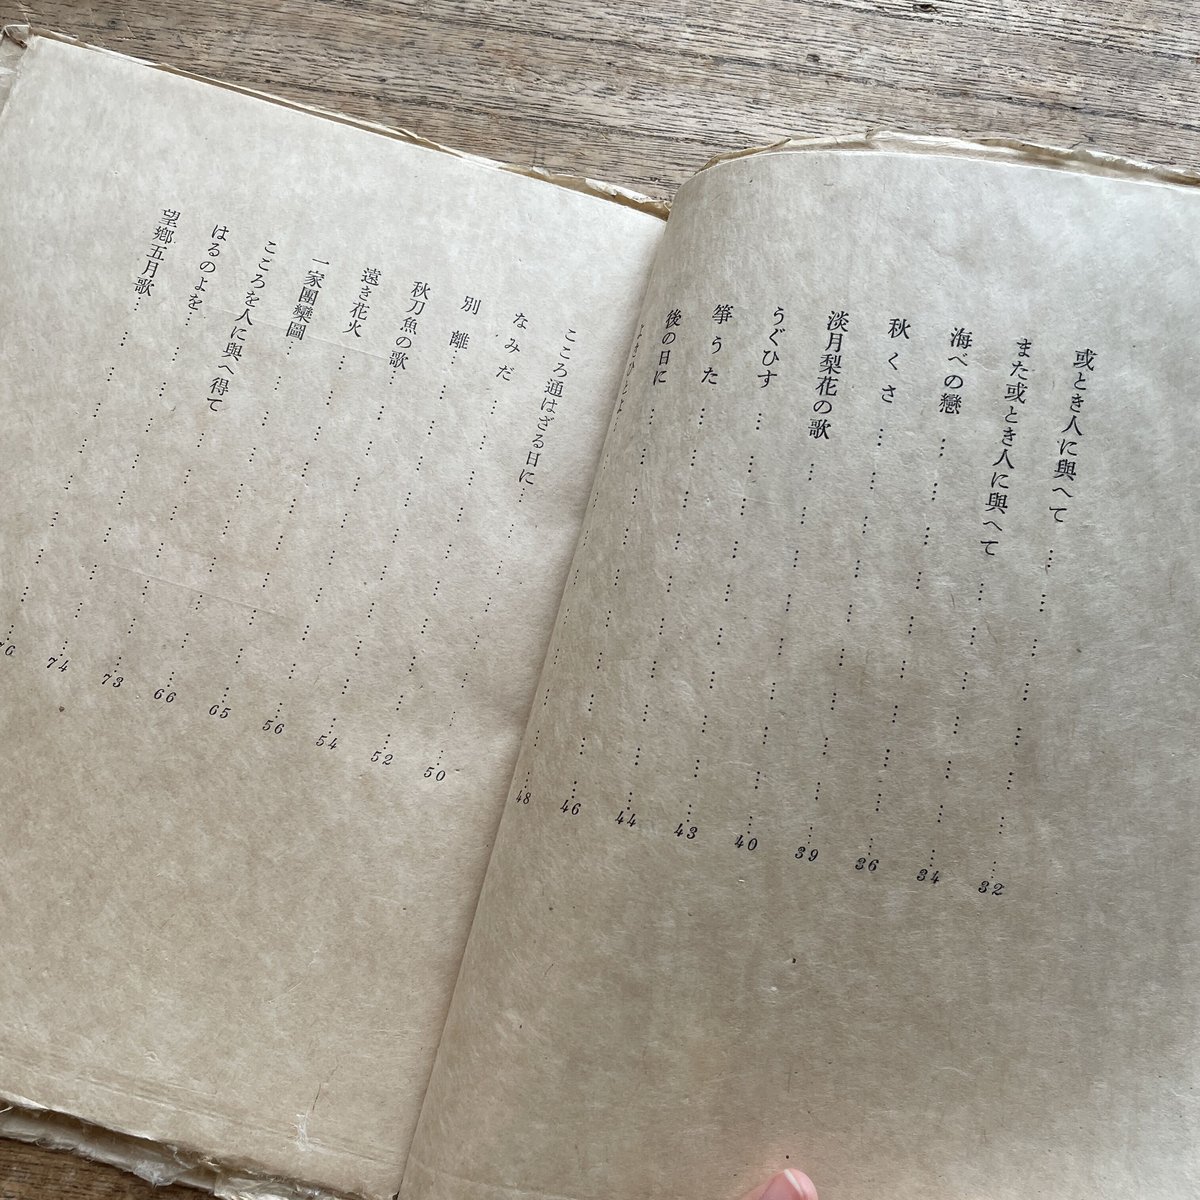 或とき人に與へて……………………32
また或とき人に與へて……………………34
海べの戀……………………36
秋くさ……………………39
淡月梨花の歌……………………40
うぐひす……………………43
箏うた……………………44
後の日に……………………46
よきひとよ……………………48
こころ通はざる日に……………………50
なみだ……………………52
別離……………………54
秋刀魚の歌……………………56
遠き花火……………………65
一家團欒圖……………………66
こころを人に與へ得て……………………73
はるのよを……………………74
望鄕五月歌……………………76